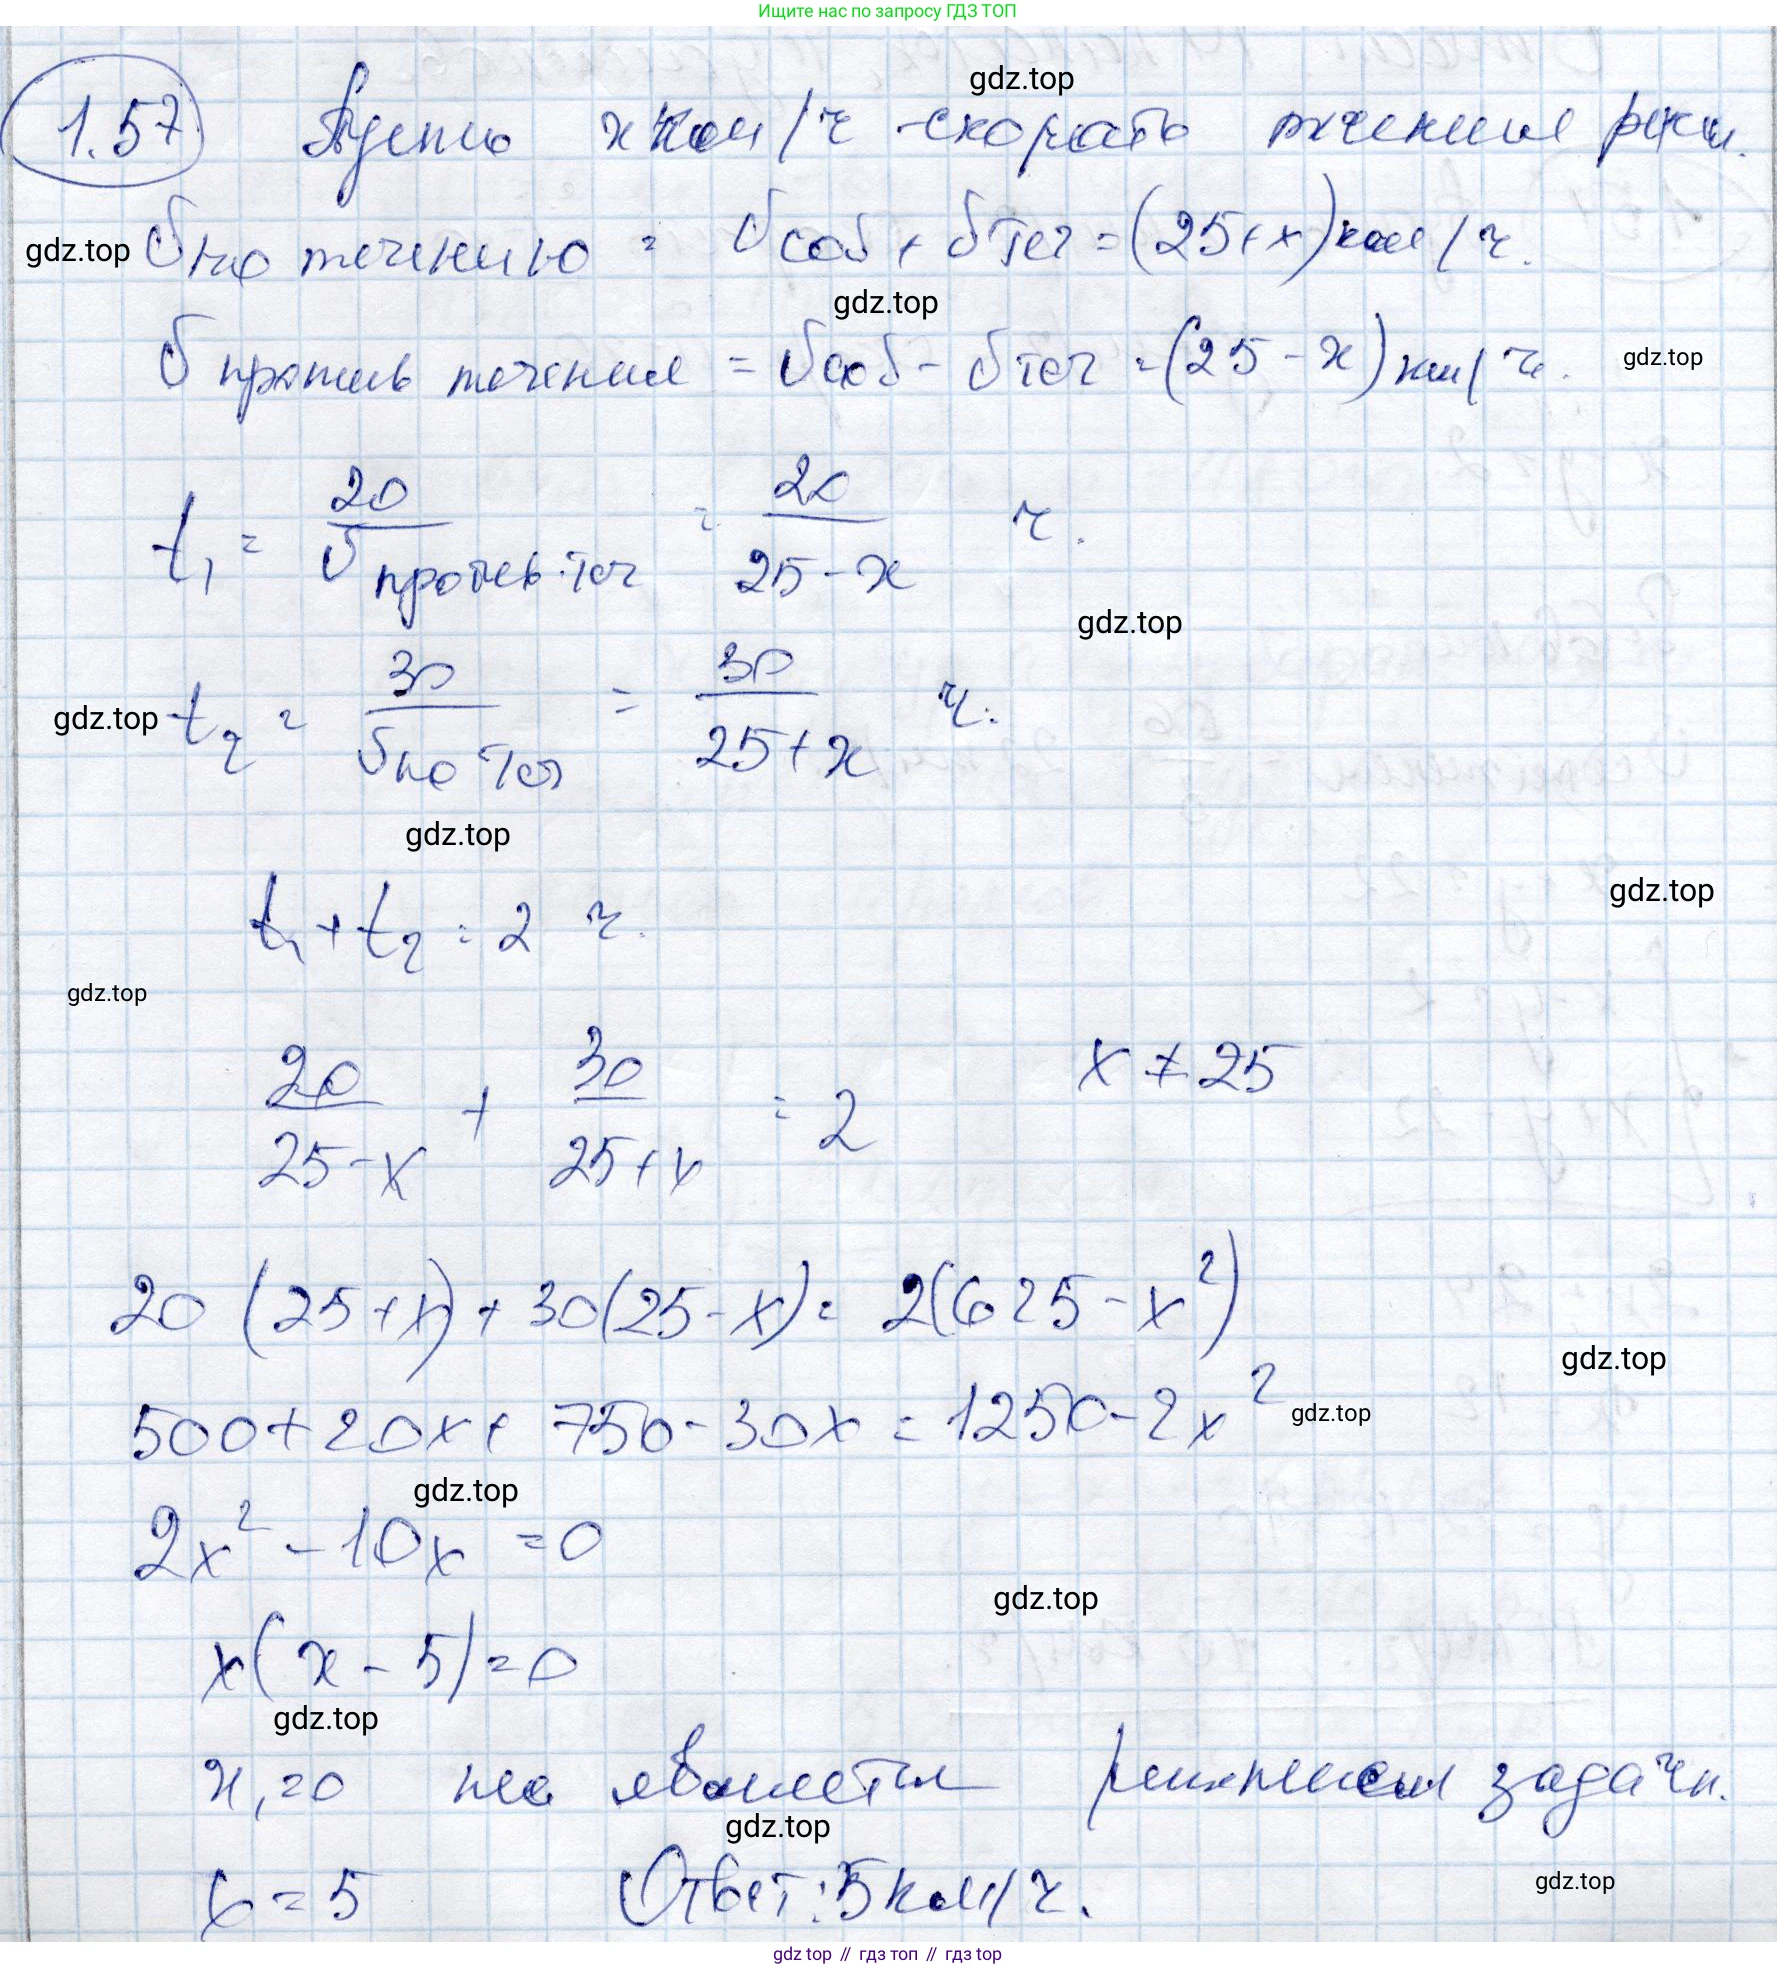 Ищите нас по запросу ГДЗ ТОП
1.57 Пусть x км/ч - скорость течения реки.
gdz.top
gdz.top υ по течению = υ соб + υ теч = (25+x) км/ч.
gdz.top
υ против течения = υ соб - υ теч = (25 - x) км/ч. gdz.top
t₁ = 20 / υ против теч = 20 / 25 - x ч.
gdz.top
gdz.top t₂ = 30 / υ по теч = 30 / 25 + x ч.
gdz.top
gdz.top
t₁ + t₂ = 2 ч.
gdz.top
20 / 25 - x + 30 / 25 + x = 2 x ≠ 25
20 (25 + x) + 30(25 - x) = 2(625 - x²)
gdz.top
500 + 20x + 750 - 30x = 1250 - 2x² gdz.top
gdz.top
2x² - 10x = 0
gdz.top
x(x - 5) = 0
gdz.top
x₁ = 0 не является решением задачи.
gdz.top
x = 5 Ответ: 5 км/ч.
gdz.top
gdz top // гдз топ // гдз top